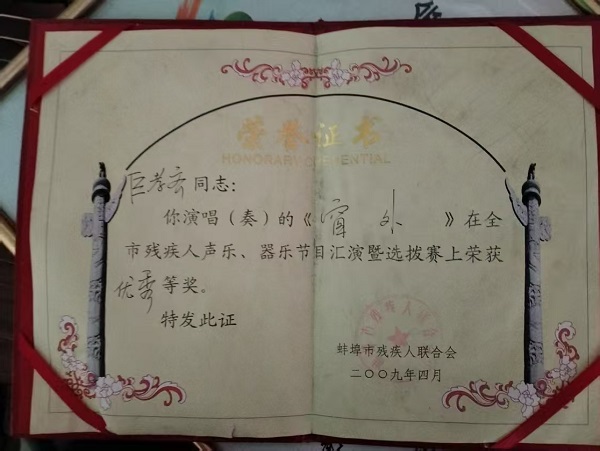 荣誉证书
HONORARY CREDENTIAL
巨孝玄同志：
你演唱（奏）的《窗外》在全
市残疾人声乐、器乐节目汇演暨选拔赛上荣获
优秀等奖。
特发此证
蚌埠市残疾人联合会
二〇〇九年四月